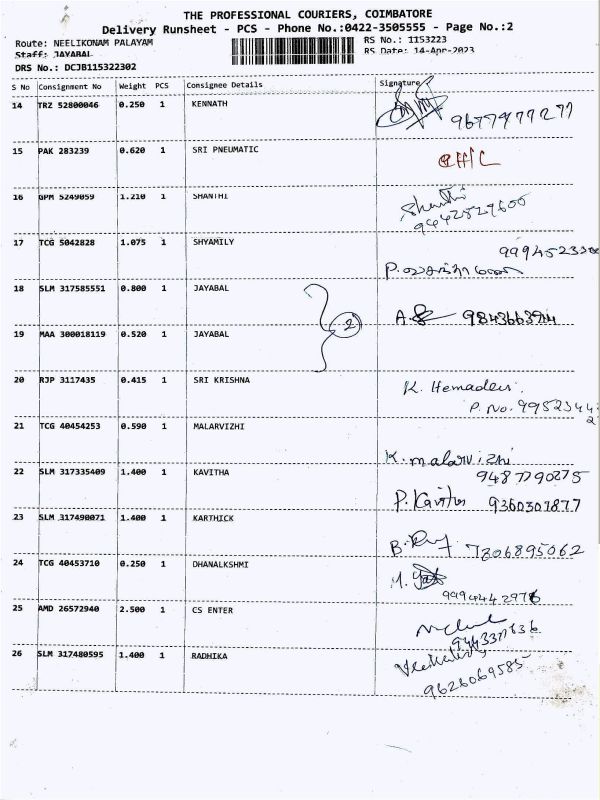 THE PROFESSIONAL COURIERS, COIMBATORE
Delivery Runsheet - PCS - Phone No.:0422-3505555 - Page No.:2
Route: NEELIKONAM PALAYAM RS No.: 1153223
Staff: JAYABAL RS Date: 14-Apr-2023
DRS No.: DCJB115322302
S No Consignment No Weight PCS Consignee Details Signature
14 TRZ 52800046 0.250 1 KENNATH
15 PAK 283239 0.620 1 SRI PNEUMATIC
16 GPM 5249059 1.210 1 SHANTHI Shanthi
17 TCG 5042828 1.075 1 SHYAMILY
18 SLM 317585551 0.800 1 JAYABAL
2
19 MAA 300018119 0.520 1 JAYABAL
20 RJP 3117435 0.415 1 SRI KRISHNA K. Hemadevi.
P. No.
21 TCG 40454253 0.590 1 MALARVIZHI K. malarvizhi
9487790275
22 SLM 317335409 1.400 1 KAVITHA P. Kavitha 9360301877
23 SLM 317490071 1.400 1 KARTHICK B. 7806895062
24 TCG 40453710 0.250 1 DHANALKSHMI
25 AMD 26572940 2.500 1 CS ENTER
26 SLM 317480595 1.400 1 RADHIKA
9626069585